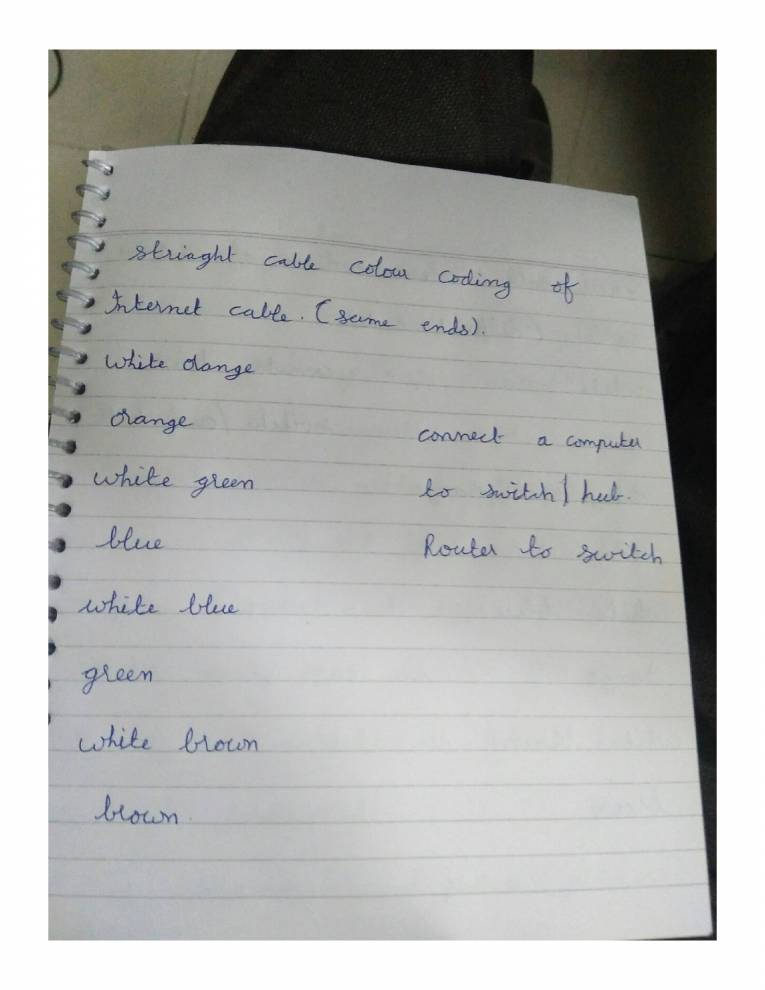 striaght cable colour coding of
Internet cable. (same ends).
white orange
orange
white green
blue
white blue
green
white brown
brown.
connect a computer
to switch / hub.
Router to switch